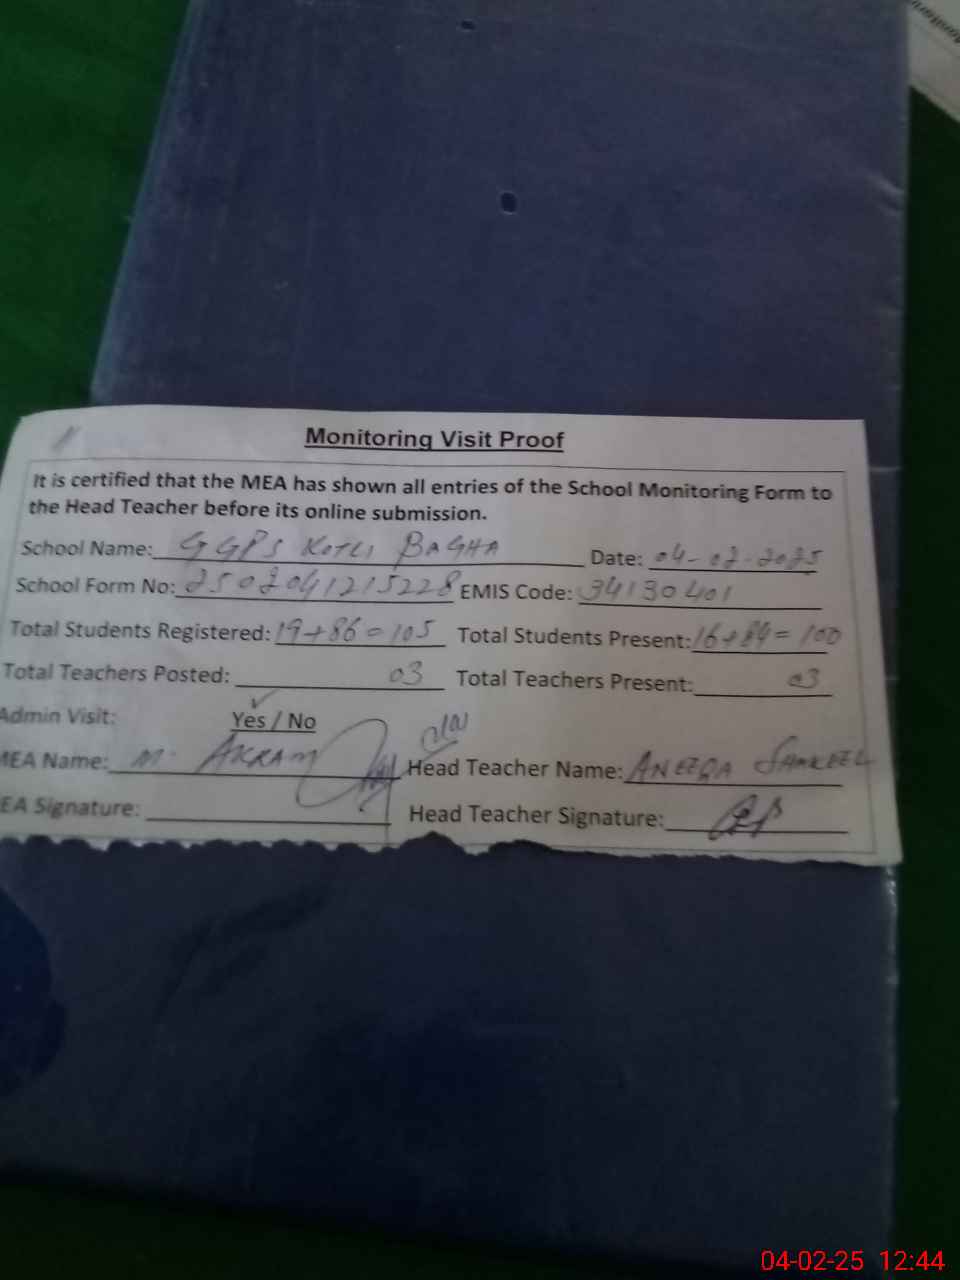 Monitoring Visit Proof
It is certified that the MEA has shown all entries of the School Monitoring Form to
the Head Teacher before its online submission.
School Name: GGPS KOTLI BAGHA Date: 04-02-2025
School Form No: 2502041215228 EMIS Code: 34130401
Total Students Registered: 19+86=105 Total Students Present: 16+84=100
Total Teachers Posted: 03 Total Teachers Present: 03
Admin Visit: Yes / No
MEA Name: M. AKRAM Head Teacher Name: ANEEQA
EA Signature: Head Teacher Signature:
04-02-25 12:44